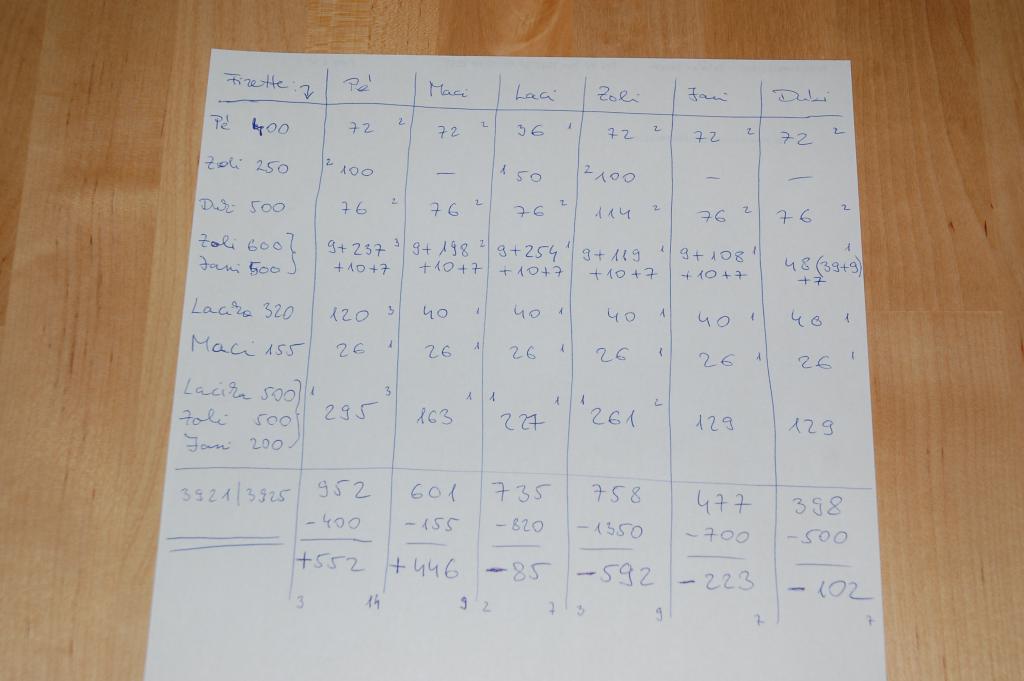 Fizette: ↓ Pé Maci Laci Zoli Jani Dubi
Pé 400 72 2 72 2 36 1 72 2 72 2 72 2
Zoli 250 2 100 — 1 50 2 100 — —
Dubi 500 76 2 76 2 76 2 114 2 76 2 76 2
Zoli 600} 9+237 3 9+198 2 9+254 1 9+119 1 9+108 1 48(39+9) 1
Jani 500 +10+7 +10+7 +10+7 +10+7 +10+7 +7
Lacika 320 120 3 40 1 40 1 40 1 40 1 40 1
Maci 155 26 1 26 1 26 1 26 1 26 1 26 1
Lacika 500} 1 295 3 163 1 1 227 1 1 261 2 129 129
Zoli 500
Jani 200
3921/3925 952 601 735 758 477 398
-400 -155 -820 -1350 -700 -500
+552 +446 -85 -592 -223 -102
3 14 9 2 7 3 9 7 7